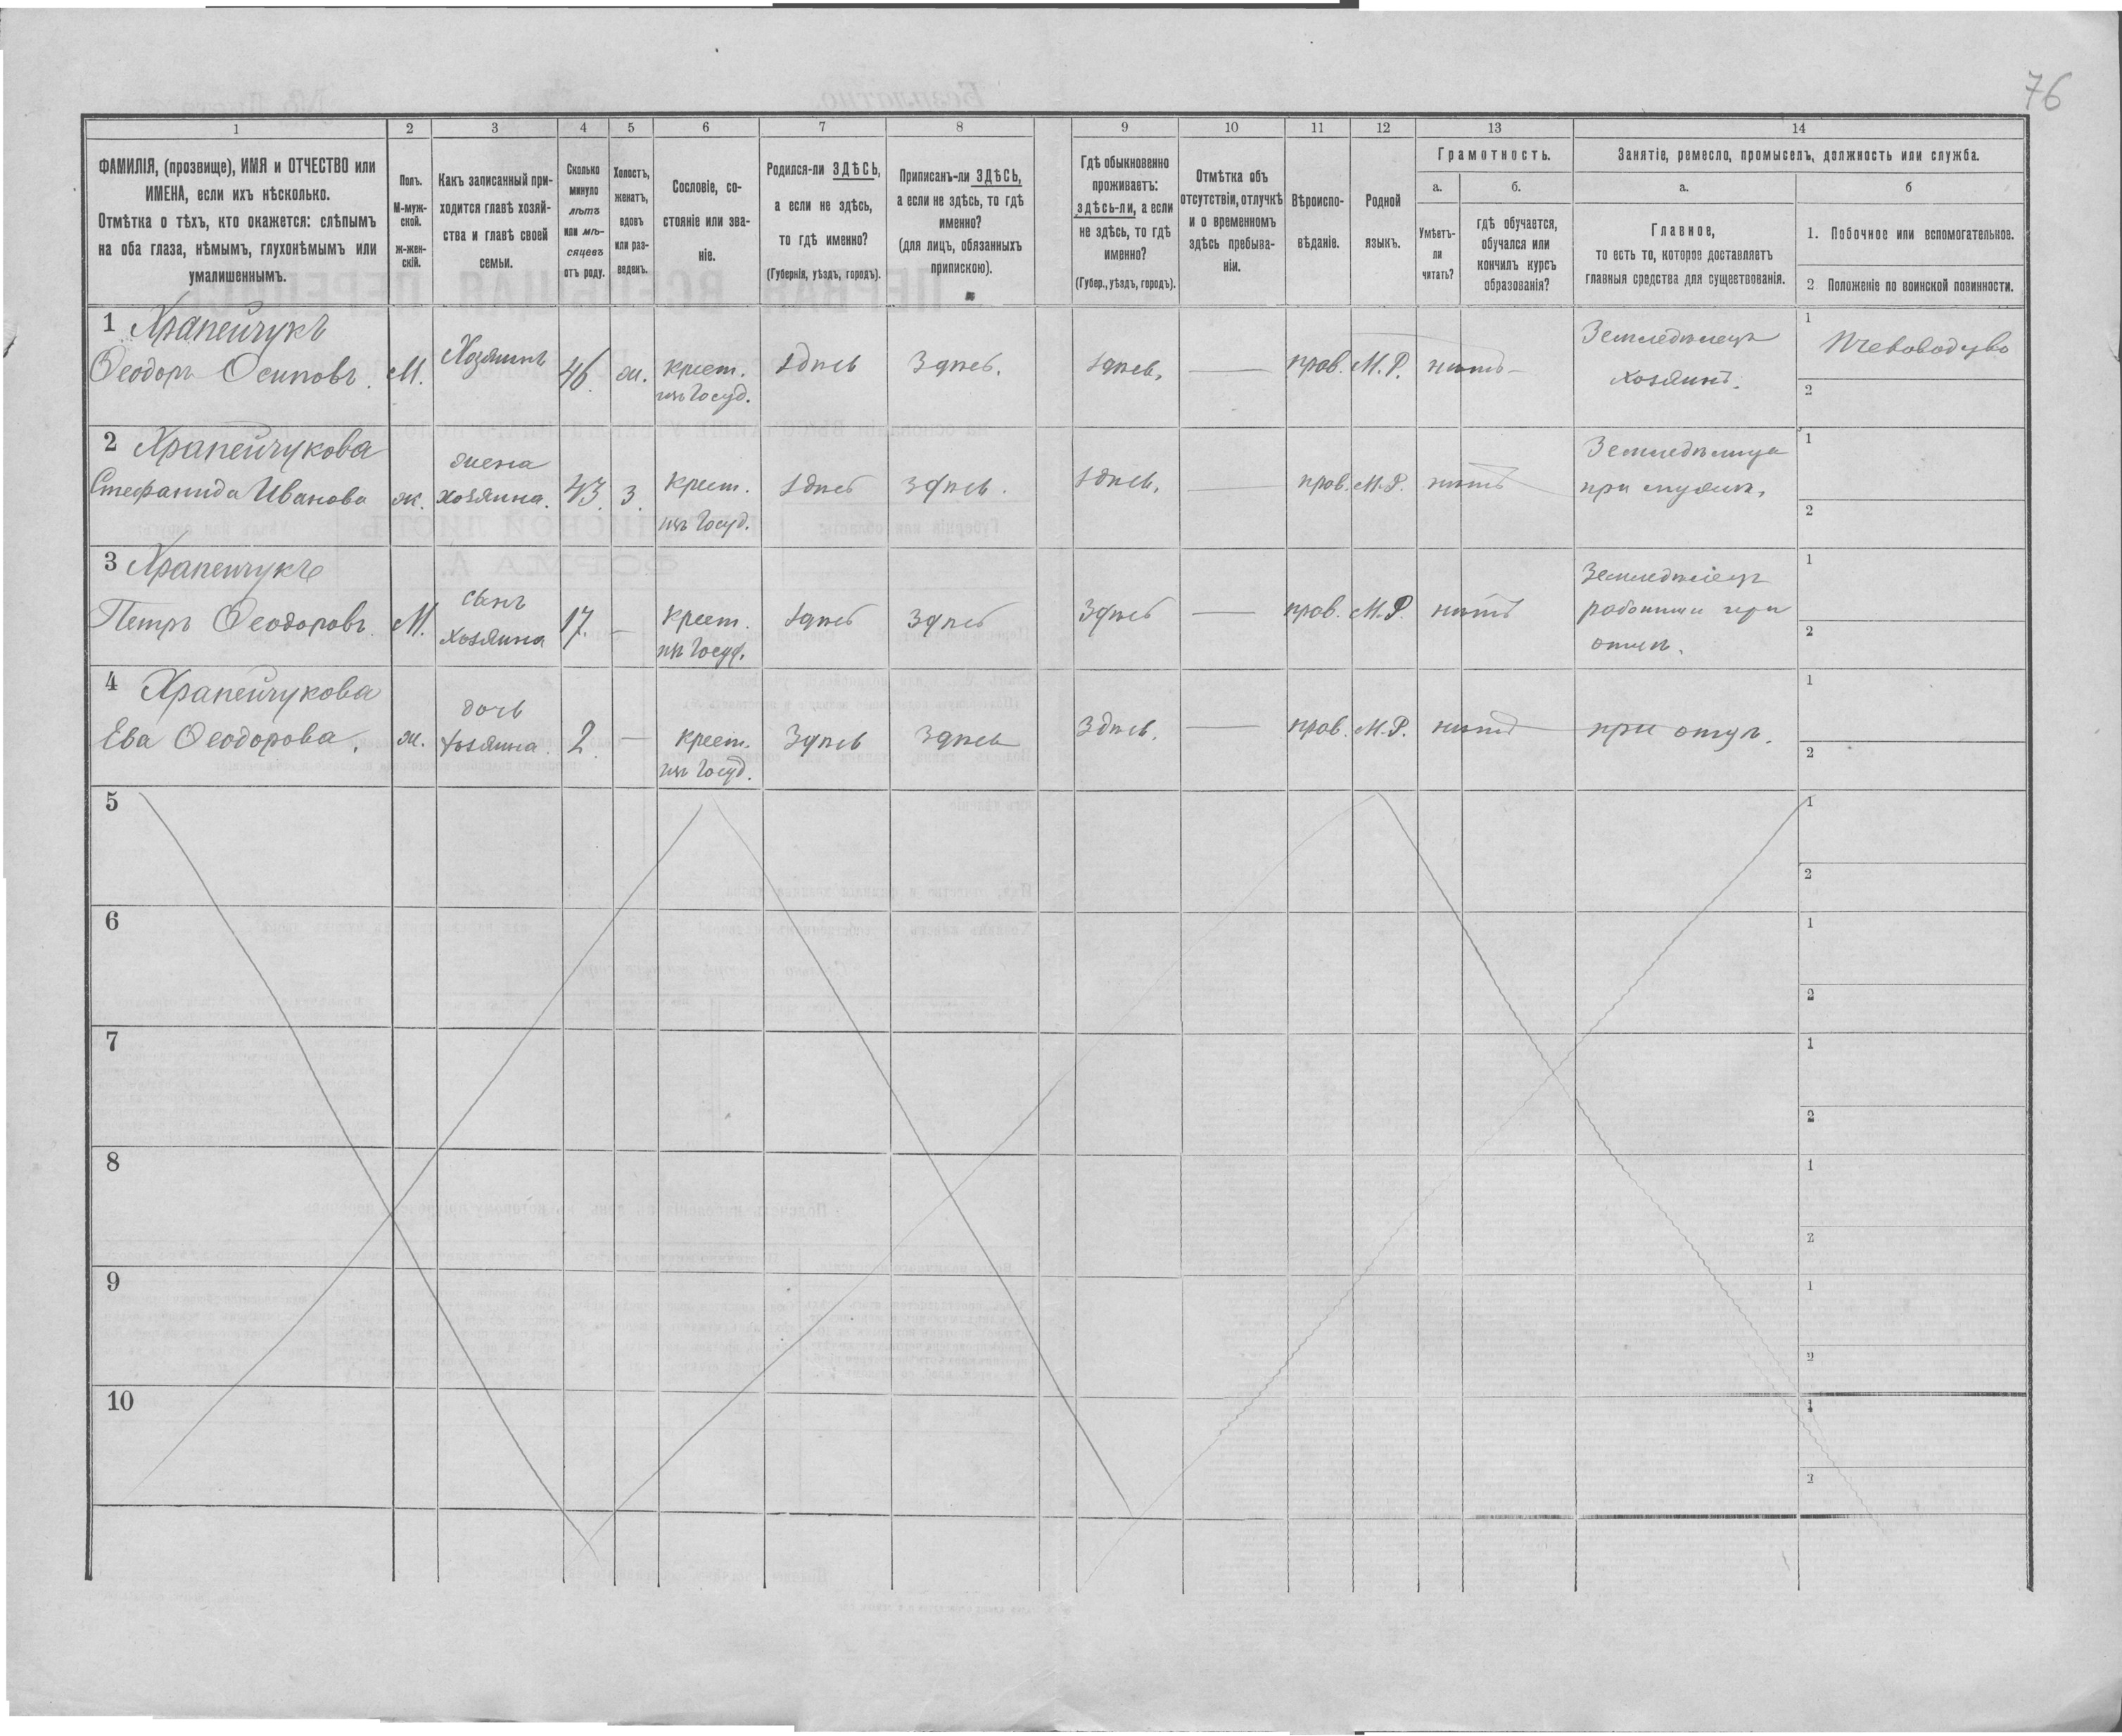 76
1
2
3
4
5
6
7
8
9
10
11
12
13
14
ФАМИЛІЯ, (прозвище), ИМЯ и ОТЧЕСТВО или
ИМЕНА, если ихъ нѣсколько.
Отмѣтка о тѣхъ, кто окажется: слѣпымъ
на оба глаза, нѣмымъ, глухонѣмымъ или
умалишеннымъ.
Полъ.
М-муж-
ской.
Ж-жен-
скій.
Какъ записанный при-
ходится главѣ хозяй-
ства и главѣ своей
семьи.
Сколько
минуло
лѣтъ
или мѣ-
сяцевъ
отъ роду.
Холостъ,
женатъ,
вдовъ
или раз-
веденъ.
Сословіе, со-
стояніе или зва-
ніе.
Родился-ли ЗДѢСЬ,
а если не здѣсь,
то гдѣ именно?
(Губернія, уѣздъ, городъ).
Приписанъ-ли ЗДѢСЬ,
а если не здѣсь, то гдѣ
именно?
(для лицъ, обязанныхъ
припискою).
Гдѣ обыкновенно
проживаетъ:
здѣсь-ли, а если
не здѣсь, то гдѣ
именно?
(Губер., уѣздъ, городъ).
Отмѣтка объ
отсутствіи, отлучкѣ
и о временномъ
здѣсь пребыва-
ніи.
Вѣроиспо-
вѣданіе.
Родной
языкъ.
Грамотность.
а.
Умѣетъ-
ли
читать?
б.
гдѣ обучается,
обучался или
кончилъ курсъ
образованія?
Занятіе, ремесло, промыселъ, должность или служба.
а.
Главное,
то есть то, которое доставляетъ
главныя средства для существованія.
б
1. Побочное или вспомогательное.
2 Положеніе по воинской повинности.
1 Храпейчукъ
Ѳеодоръ Осиповъ.
М.
Хозяинъ
46.
ж.
крест.
изъ Госуд.
здѣсь
здѣсь.
здѣсь.
—
прав.
М.Р.
нѣтъ
Земледѣлецъ
хозяинъ.
1
Пчеловодство
2
2 Храпейчукова
Стефанида Иванова
ж.
жена
хозяина.
43.
З.
крест.
изъ Госуд.
здѣсь
здѣсь.
здѣсь.
—
прав.
М.Р.
нѣтъ
Земледѣлица
при мужѣ.
1
2
3 Храпейчукъ
Петръ Ѳеодоровъ.
М.
сынъ
хозяина
17.
—
крест.
изъ Госуд.
здѣсь
здѣсь
здѣсь
—
прав.
М.Р.
нѣтъ
Земледѣлецъ
работникъ при
отцѣ.
1
2
4 Храпейчукова
Ева Ѳеодорова.
ж.
дочь
хозяина.
2
—
крест.
изъ Госуд.
здѣсь
здѣсь
здѣсь.
—
прав.
М.Р.
нѣтъ
при отцѣ.
1
2
5
1
2
6
1
2
7
1
2
8
1
2
9
1
2
10
1
2